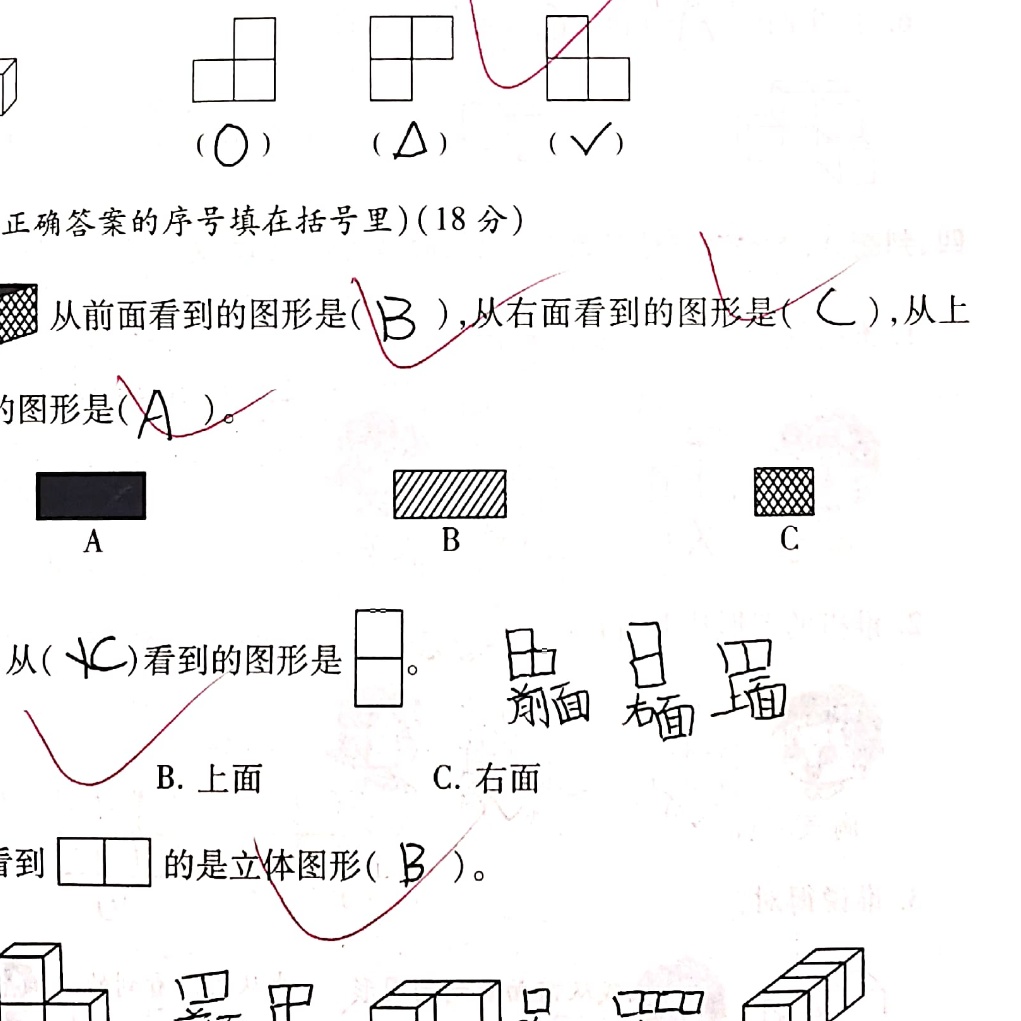 (O) (△) (✓)
正确答案的序号填在括号里)(18 分)
从前面看到的图形是( B ),从右面看到的图形是( C ),从上
的图形是( A )。
A B C
从( C )看到的图形是 。
前面 右面 上面
B. 上面 C. 右面
看到 的是立体图形( B )。